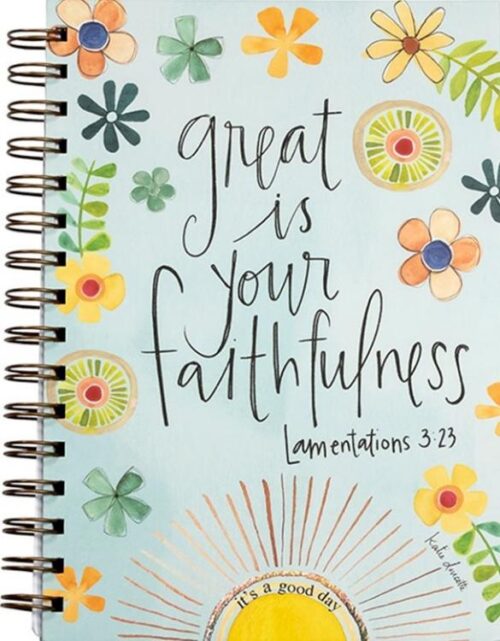 great
is
your
faithfulness
Lamentations 3:23
it's a good day